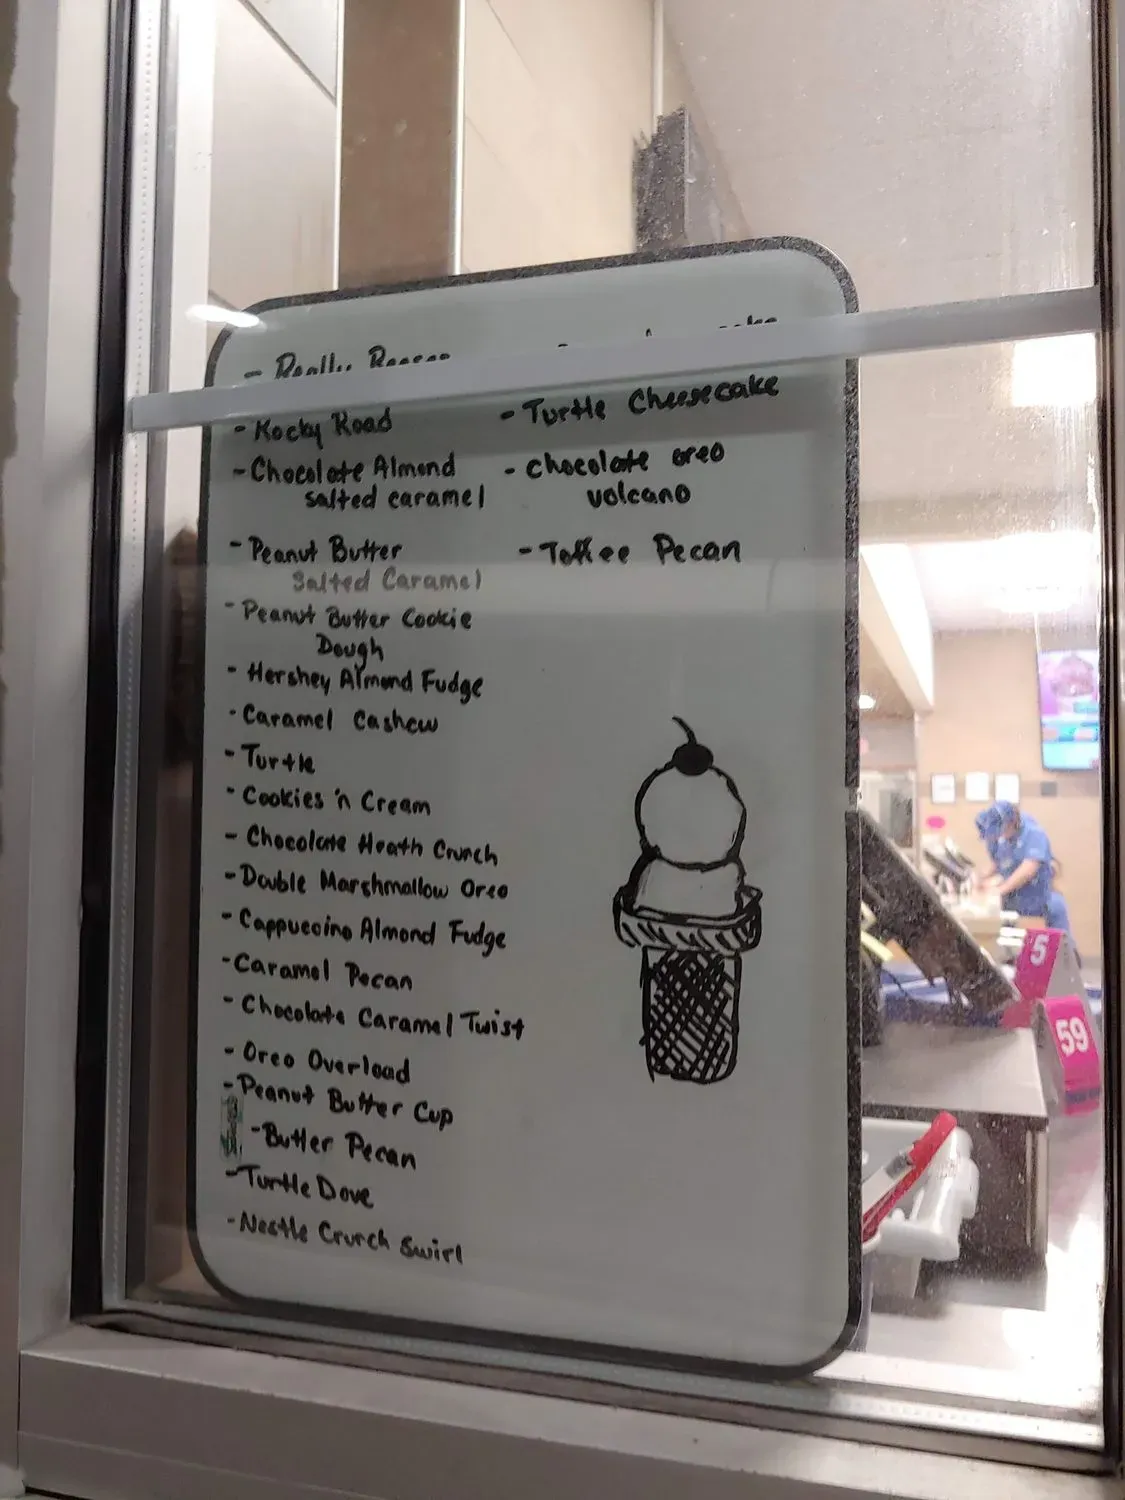 - Really Reeses
- Rocky Road
- Chocolate Almond
salted caramel
- Peanut Butter
Salted Caramel
- Peanut Butter Cookie
Dough
- Hershey Almond Fudge
- Caramel Cashew
- Turtle
- Cookies 'n Cream
- Chocolate Heath Crunch
- Double Marshmallow Oreo
- Cappuccino Almond Fudge
- Caramel Pecan
- Chocolate Caramel Twist
- Oreo Overload
- Peanut Butter Cup
- Butter Pecan
- Turtle Dove
- Nestle Crunch Swirl
- Turtle Cheesecake
- Chocolate oreo
volcano
- Toffee Pecan
5
59